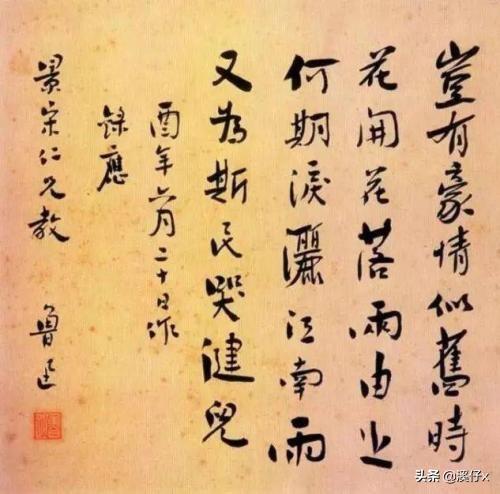 豈有豪情似舊時
花開花落兩由之
何期淚灑江南雨
又為斯民哭健兒
酉年六月二十日作
錄應
景宋仁兄教
魯迅
头条 @溪仔x